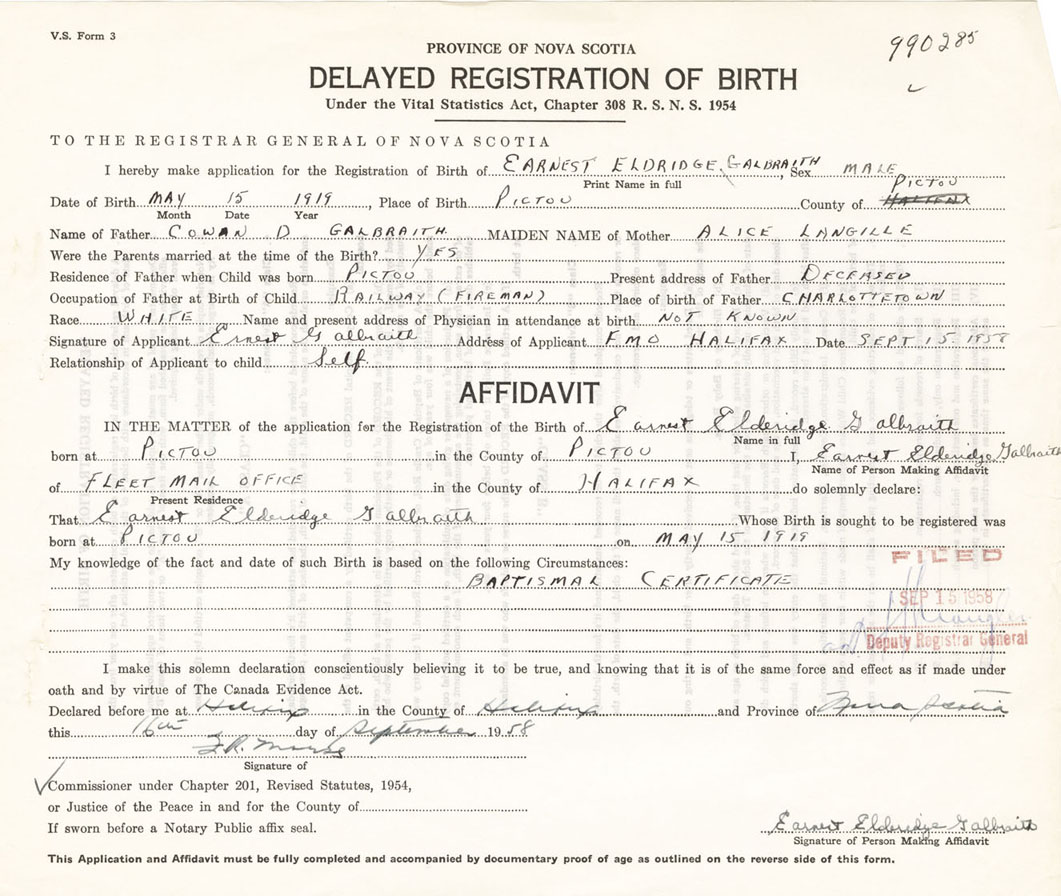 V.S. Form 3
990285
PROVINCE OF NOVA SCOTIA
DELAYED REGISTRATION OF BIRTH
Under the Vital Statistics Act, Chapter 308 R. S. N. S. 1954
TO THE REGISTRAR GENERAL OF NOVA SCOTIA
I hereby make application for the Registration of Birth of EARNEST ELDRIDGE GALBRAITH, Sex MALE
Print Name in full
PICTOU
Date of Birth MAY 15 1919, Place of Birth PICTOU County of HALIFAX
Month Date Year
Name of Father COWAN D GALBRAITH MAIDEN NAME of Mother ALICE LANGILLE
Were the Parents married at the time of the Birth? YES
Residence of Father when Child was born PICTOU Present address of Father DECEASED
Occupation of Father at Birth of Child RAILWAY (FIREMAN) Place of birth of Father CHARLOTTETOWN
Race WHITE Name and present address of Physician in attendance at birth NOT KNOWN
Signature of Applicant Ernest Galbraith Address of Applicant F.M.O HALIFAX Date SEPT 15. 1958
Relationship of Applicant to child Self.
AFFIDAVIT
IN THE MATTER of the application for the Registration of the Birth of Earnest Elderidge Galbraith
Name in full
born at PICTOU in the County of PICTOU I, Earnest Elderidge Galbraith
Name of Person Making Affidavit
of FLEET MAIL OFFICE in the County of HALIFAX do solemnly declare:
Present Residence
That Earnest Elderidge Galbraith Whose Birth is sought to be registered was
born at PICTOU on MAY 15 1919
My knowledge of the fact and date of such Birth is based on the following Circumstances:
FILED
BAPTISMAL CERTIFICATE
SEP 15 1958
Deputy Registrar General
I make this solemn declaration conscientiously believing it to be true, and knowing that it is of the same force and effect as if made under
oath and by virtue of The Canada Evidence Act.
Declared before me at Halifax in the County of Halifax and Province of Nova Scotia
this 16th day of September 1958
Signature of
Commissioner under Chapter 201, Revised Statutes, 1954,
or Justice of the Peace in and for the County of
If sworn before a Notary Public affix seal.
Earnest Elderidge Galbraith
Signature of Person Making Affidavit
This Application and Affidavit must be fully completed and accompanied by documentary proof of age as outlined on the reverse side of this form.